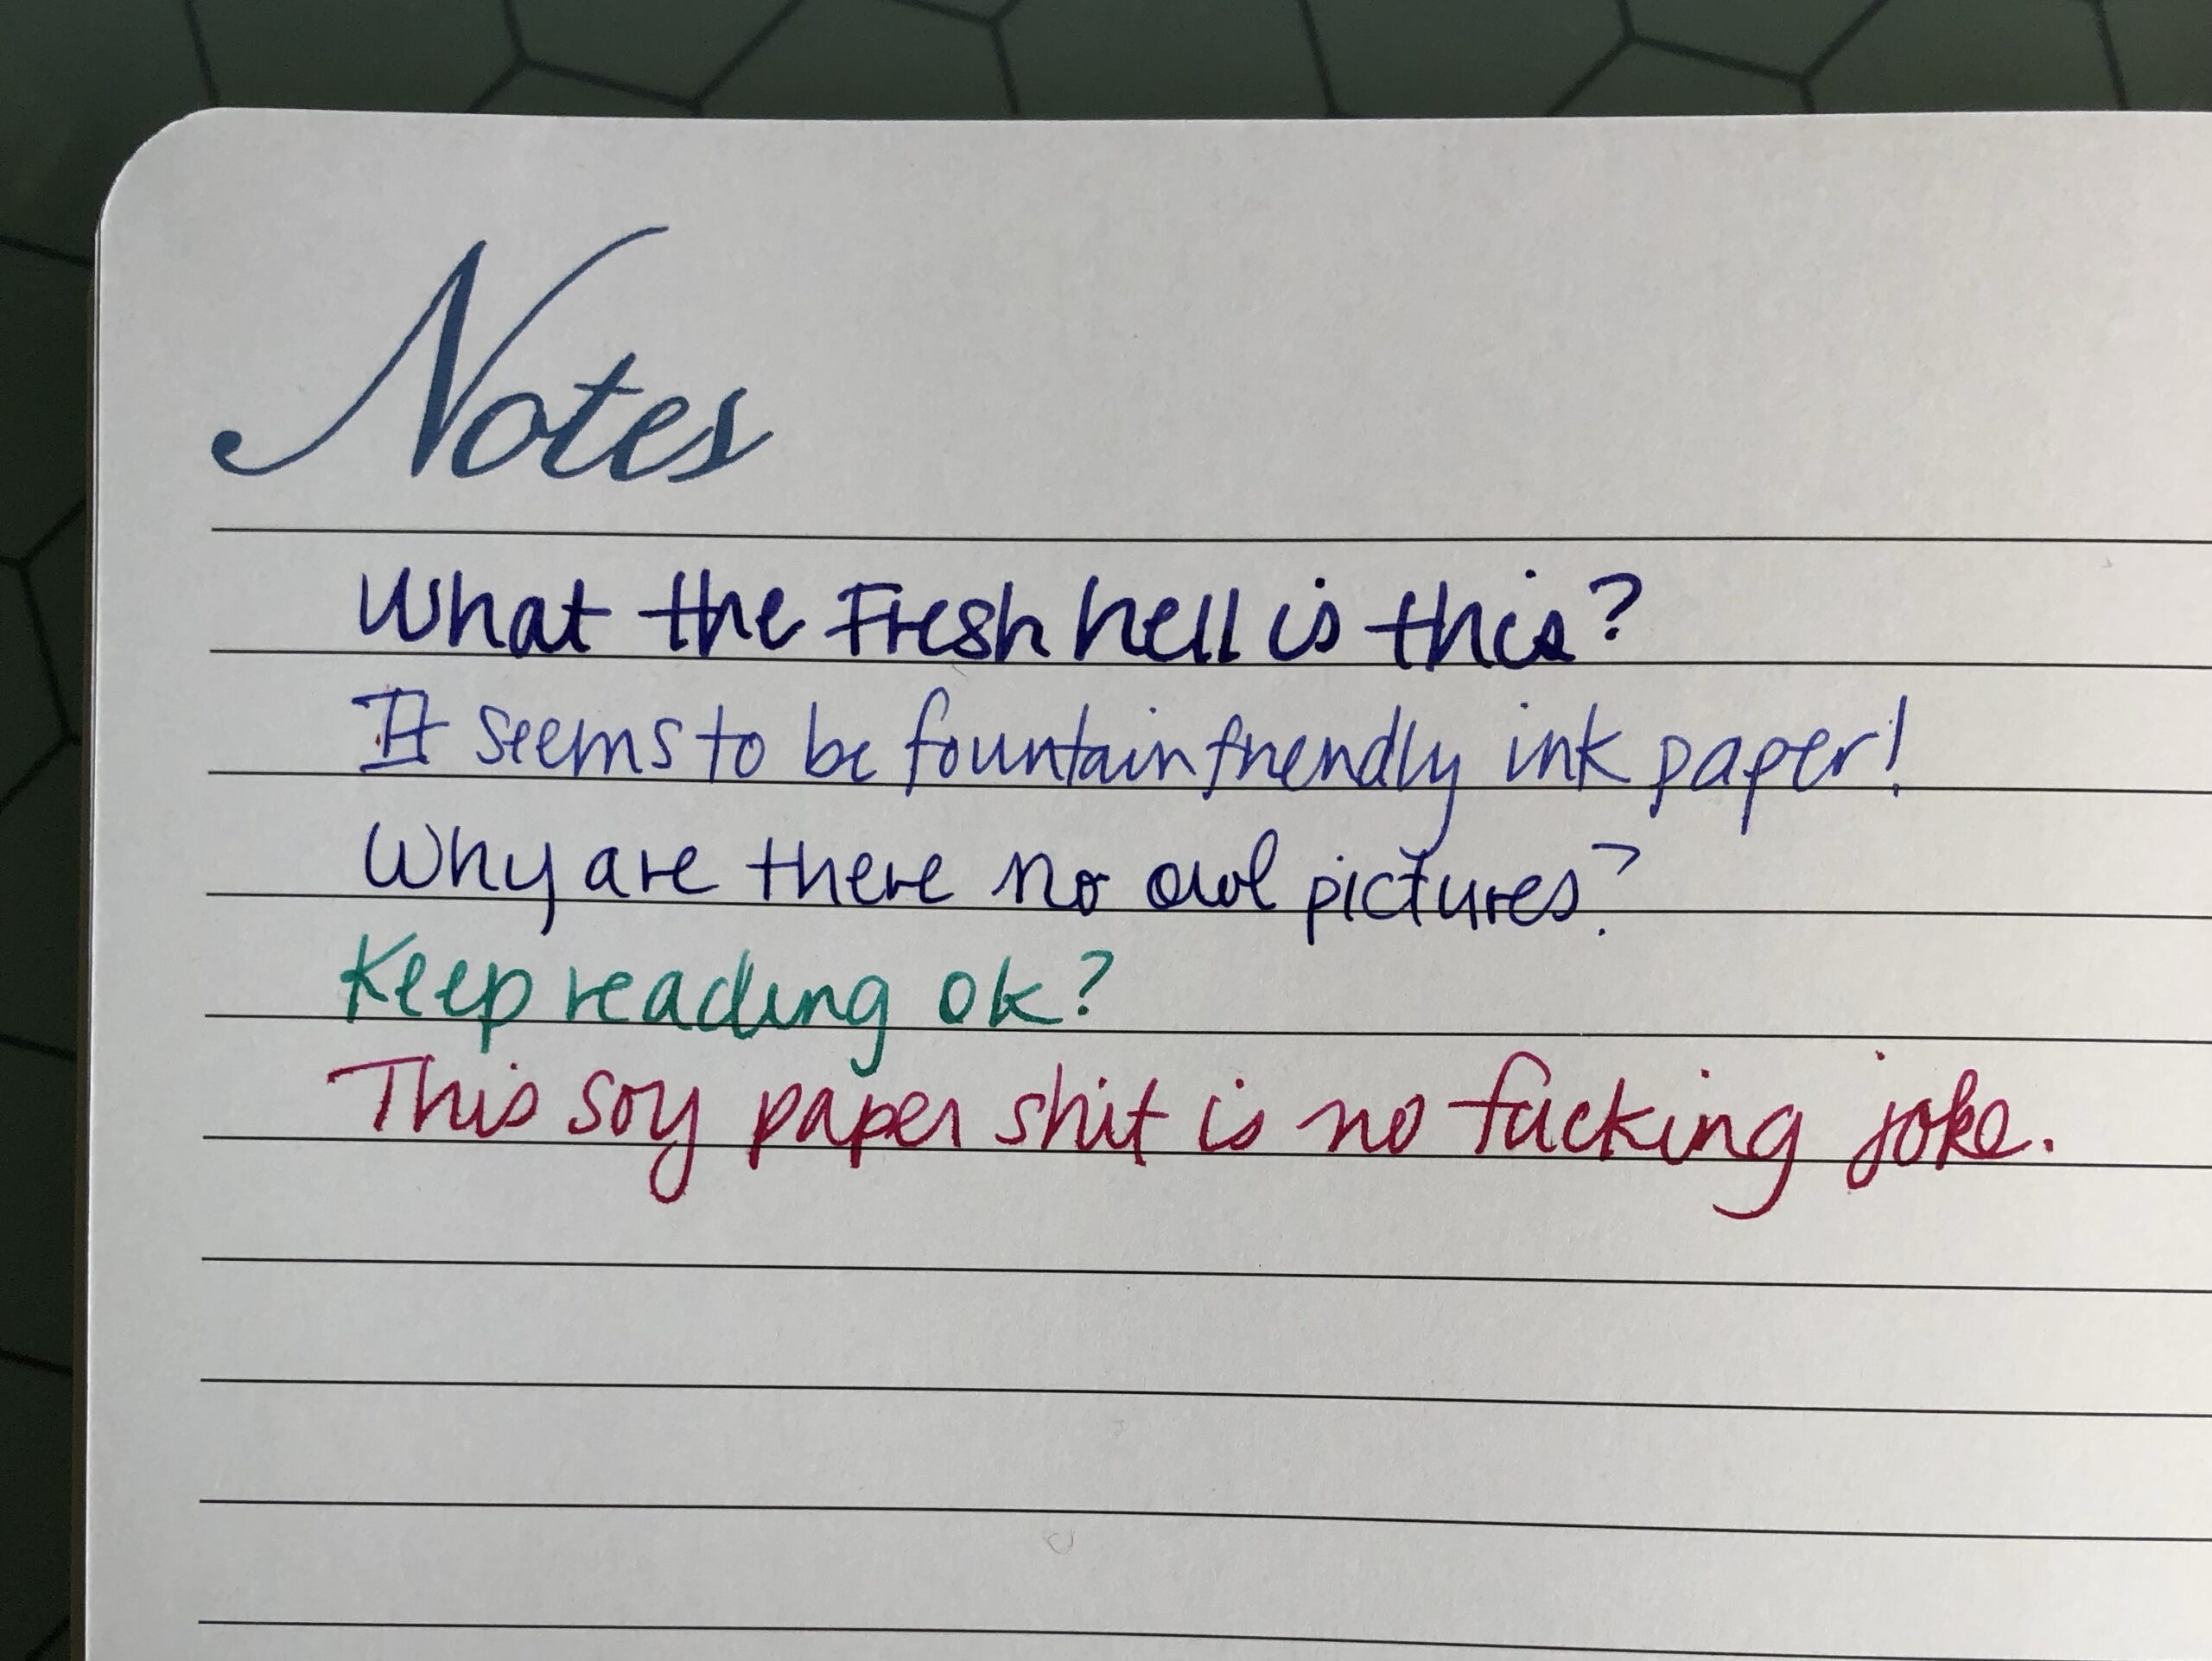 Notes
What the Fresh hell is this?
It seems to be fountain friendly ink paper!
Why are there no owl pictures?
Keep reading ok?
This soy paper shit is no fucking joke.